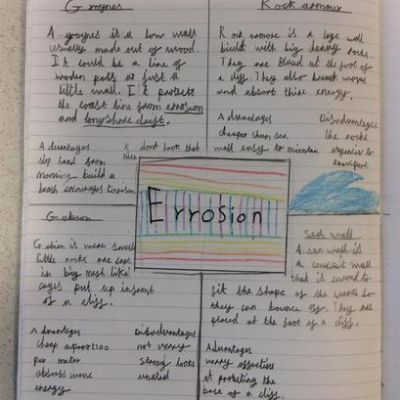 Groynes
A groynes is a low wall
usually made out of wood.
It could be a line of
wooden polls or just a
little wall. It protects
the coast line from errosion
and longshore drift.
Advantages
stop sand from
moving build a
beach encourages tourism
x dont look that
nice
Rock armour
Rock armore is a large wall
built with big heavy rocks.
They are placed at the foot of
a cliff. They also break waves
and absorb thire energy.
Advantages
cheaper than sea
wall easy to maintain
Disadvantages
the rocks
expensive to
transport
Errosion
Gabion
Gabion is were small
little rocks are kept
in big mesh like
cages put up infront
of a cliff.
Advantages
cheap
per meter
absorbs wave
energy.
Disadvantages
not very
strong looks
Sea wall
A sea wall is
a concreat wall
that is curved to
fit the shape of the waves so
they can bounce off. They are
placed at the foot of a cliff.
Advantages
verry effective
at protecting the
base of a cliff.